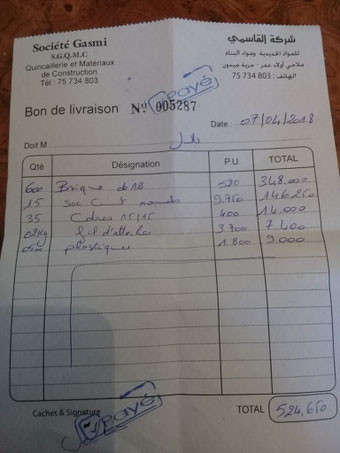 Société Gasmi
S.G.Q.M.C
Quincaillerie et Matériaux
de Construction
Tél : 75 734 803
شركة القاسمي
للمواد الحديدية ومواد البناء
ملاجي أولاد عمر - جربة ميدون
الهاتف : 803 734 75
payé
Bon de livraison Nº 005287
Date : 07/04/2018
Doit M
Qté Désignation P.U TOTAL
600 Brique de 12 348.000
15 9.750 146.250
35 Cadres 15/15 400 14.000
02Kg fil d'attache 3.700 7.400
05m plastique 1.800 9.000
payé
Cachet & Signature
TOTAL 524,650